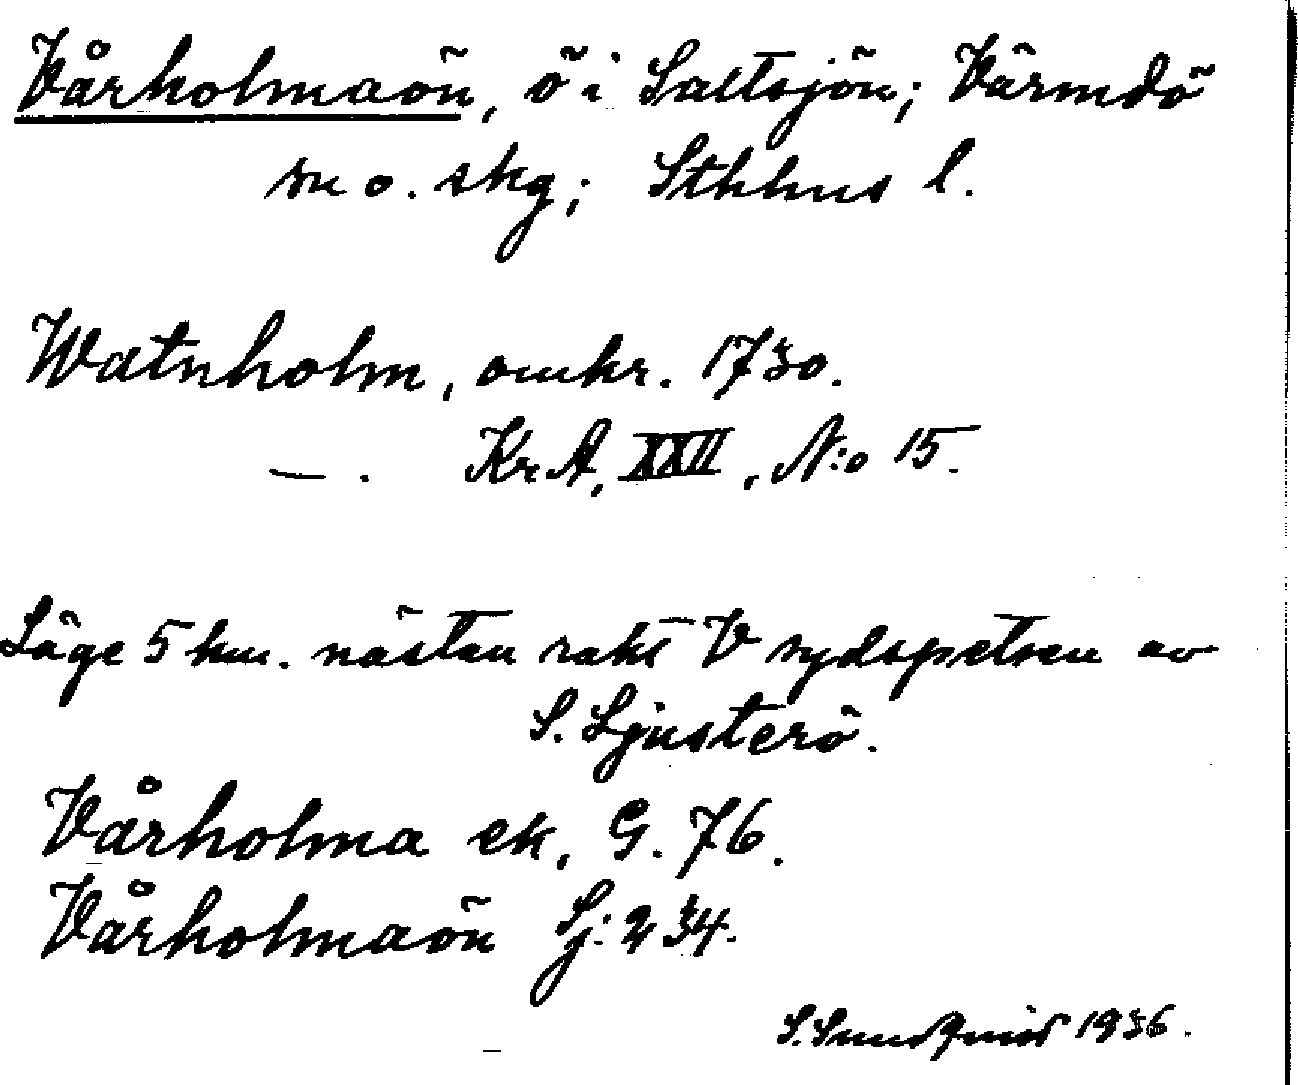 Vårholmaön, ö i Saltsjön; Värmdö
sn o. skg; Sthlms l.
Watnholm, omkr. 1730.
— . KrA, XXII, N:o 15.
Läge 5 km. nästan rakt V sydspetsen av
S. Ljusterö.
Vårholma ek, G. 76.
Vårholmaön Sj: 234.
S. Sundquist 1936.